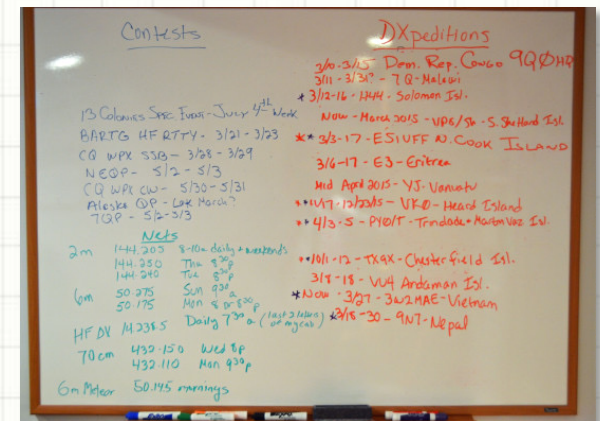 Contests
13 Colonies Spec. Event - July 4th Week
BARTG HF RTTY - 3/21 - 3/23
CQ WPX SSB - 3/28 - 3/29
NEQP - 5/2 - 5/3
CQ WPX CW - 5/30 - 5/31
Alaska QP - Late March?
7QP - 5/2-5/3
Nets
2m 144.205 8-10a daily + weekends
144.250 Thu 830p
144.240 Tue 830p
6m 50.275 Sun 930a
50.175 Mon 8 or 830p
HF DX 14.238.5 Daily 730a (last 2 letters of my call)
70cm 432.150 Wed 8p
432.110 Mon 930p
6m Meteor 50.145 mornings
DXpeditions
3/15 Dem. Rep. Congo 9QØHQ
3/11 - 3/31? - 7Q - Malawi
* 3/12-16 - H44 - Solomon Isl.
Now - March 2015 - - S. Shetland Isl.
** 3/3-17 - E51UFF N. Cook ISLAND
3/6-17 - E3 - Eritrea
Mid April 2015 - YJ - Vanuatu
** 11/17-12/23/15 - VKØ - Heard Island
** 4/3-5 - PYØ/T - Trindade + Martim Vaz Isl.
** 10/1-12 - TX9X - Chesterfield Isl.
3/8-18 - VU4 Andaman Isl.
* Now - 3/27 - 3W2MAE - Vietnam
* 3/18-30 - 9N7 - Nepal